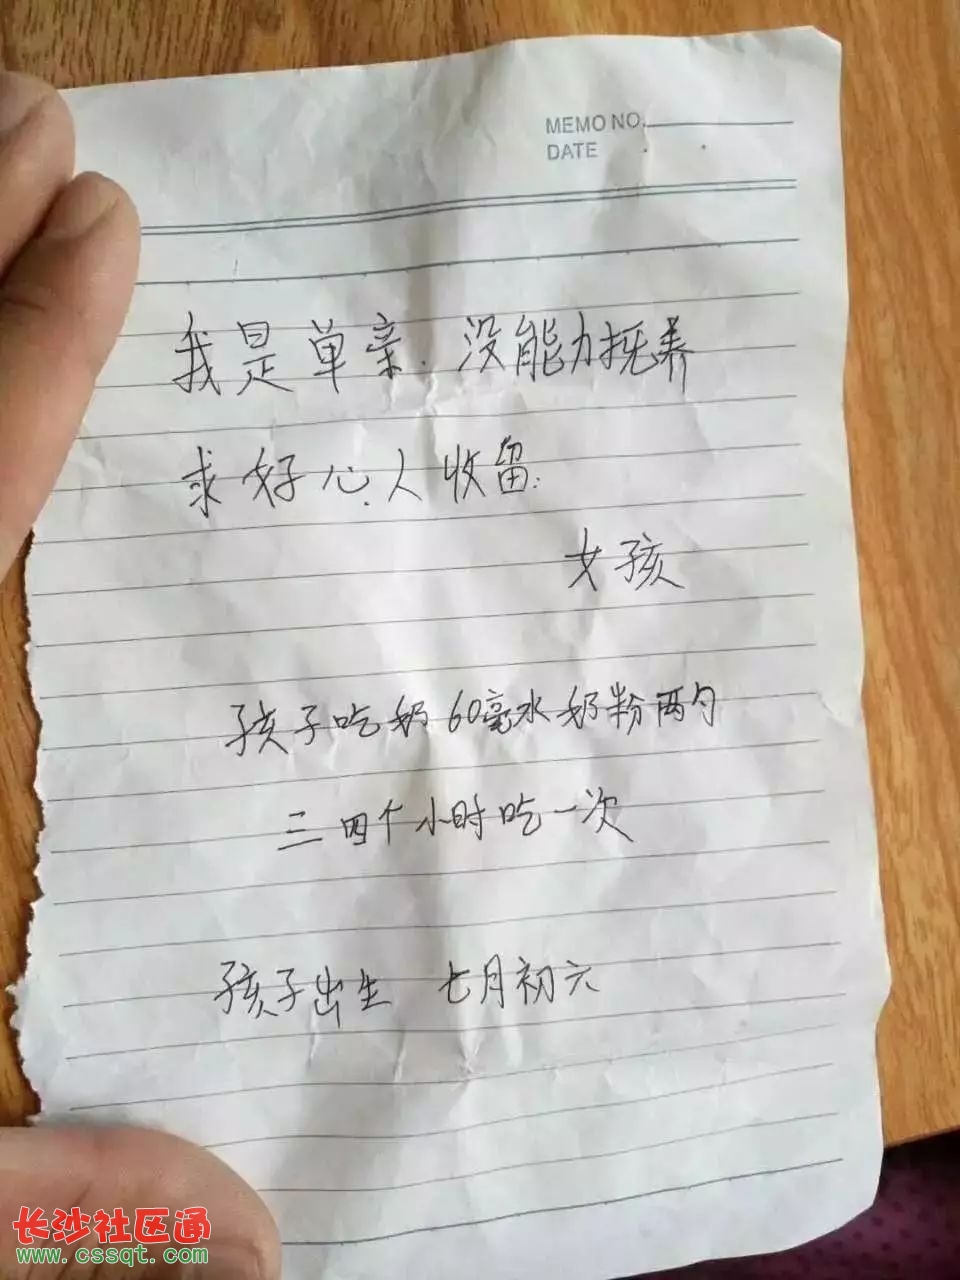 MEMO NO.
DATE
我是单亲.没能力抚养
求好心人收留.
女孩
孩子吃奶60毫水奶粉两勺
三四个小时吃一次
孩子出生 七月初六
长沙社区通
www.cssqt.com